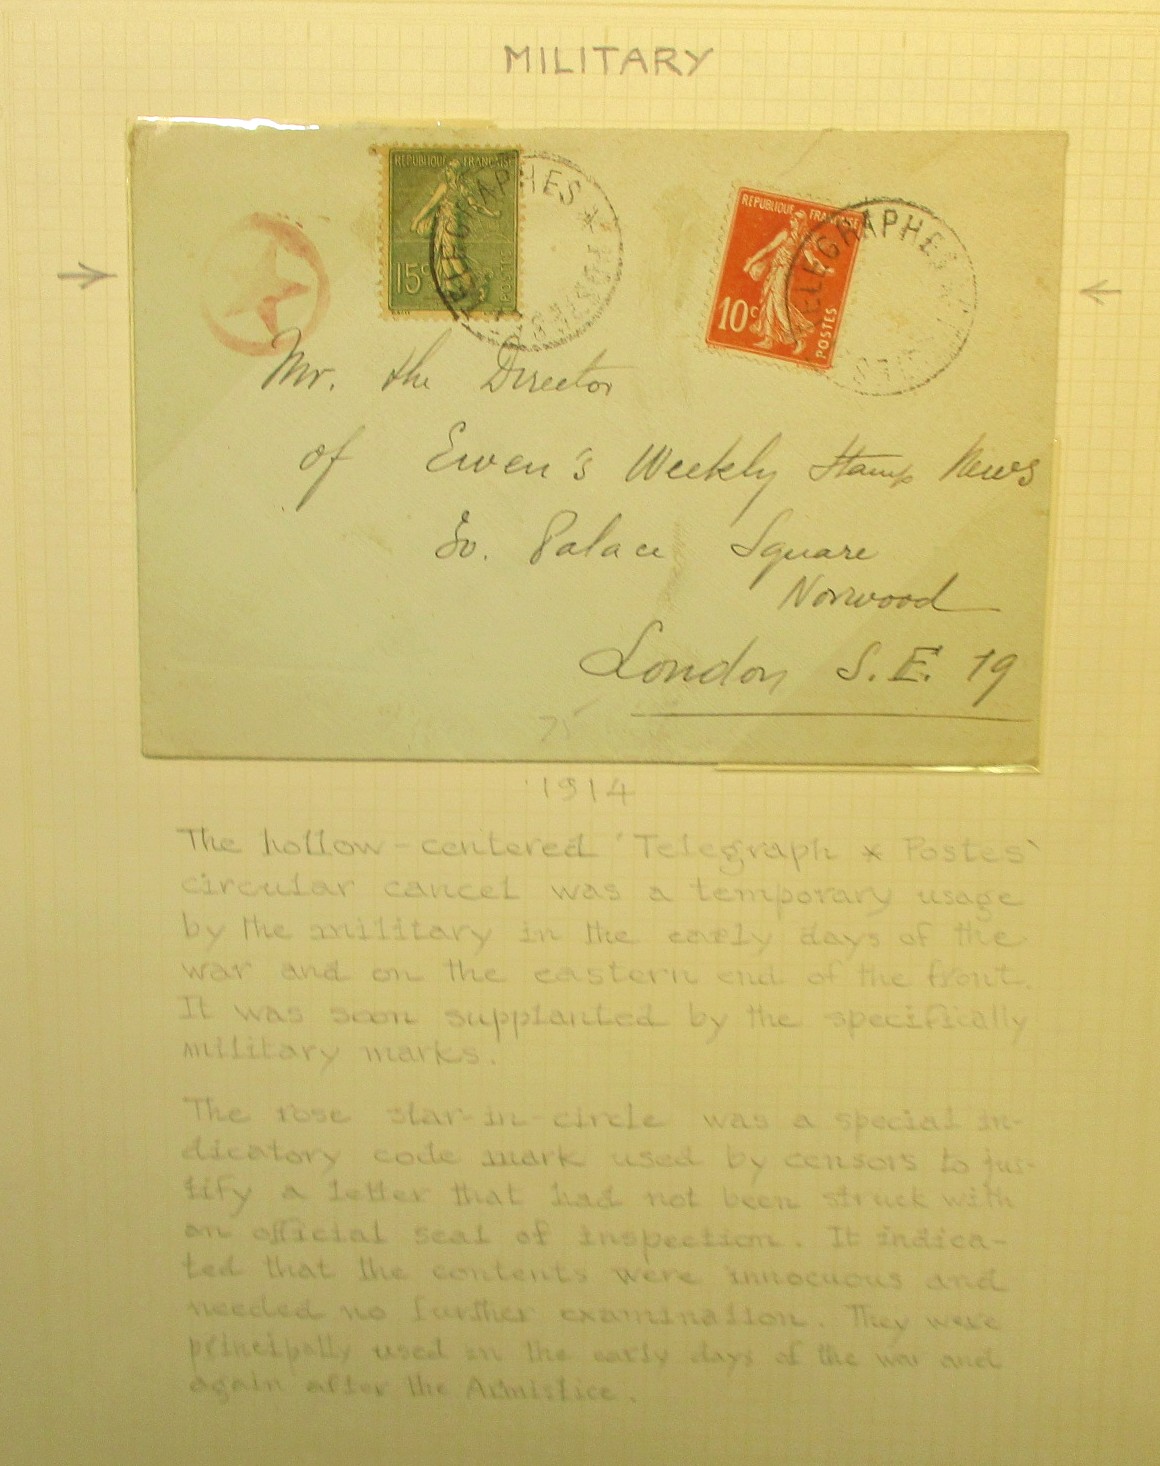 MILITARY
REPUBLIQUE FRANCAISE
15c
POSTES
TELEGRAPHES *
REPUBLIQUE FRANCAISE
10c
POSTES
TELEGRAPHES
Mr. the Director
of Ewen's Weekly Stamp News
So. Palace Square
Norwood
London S.E. 19
1914
The hollow-centered 'Telegraph * Postes'
circular cancel was a temporary usage
by the military in the early days of the
war and on the eastern end of the front.
It was soon supplanted by the specifically
military marks.
The rose star-in-circle was a special in-
dicatory code mark used by censors to jus-
tify a letter that had not been struck with
an official seal of inspection. It indica-
ted that the contents were innocuous and
needed no further examination. They were
principally used in the early days of the war and
again after the Armistice.